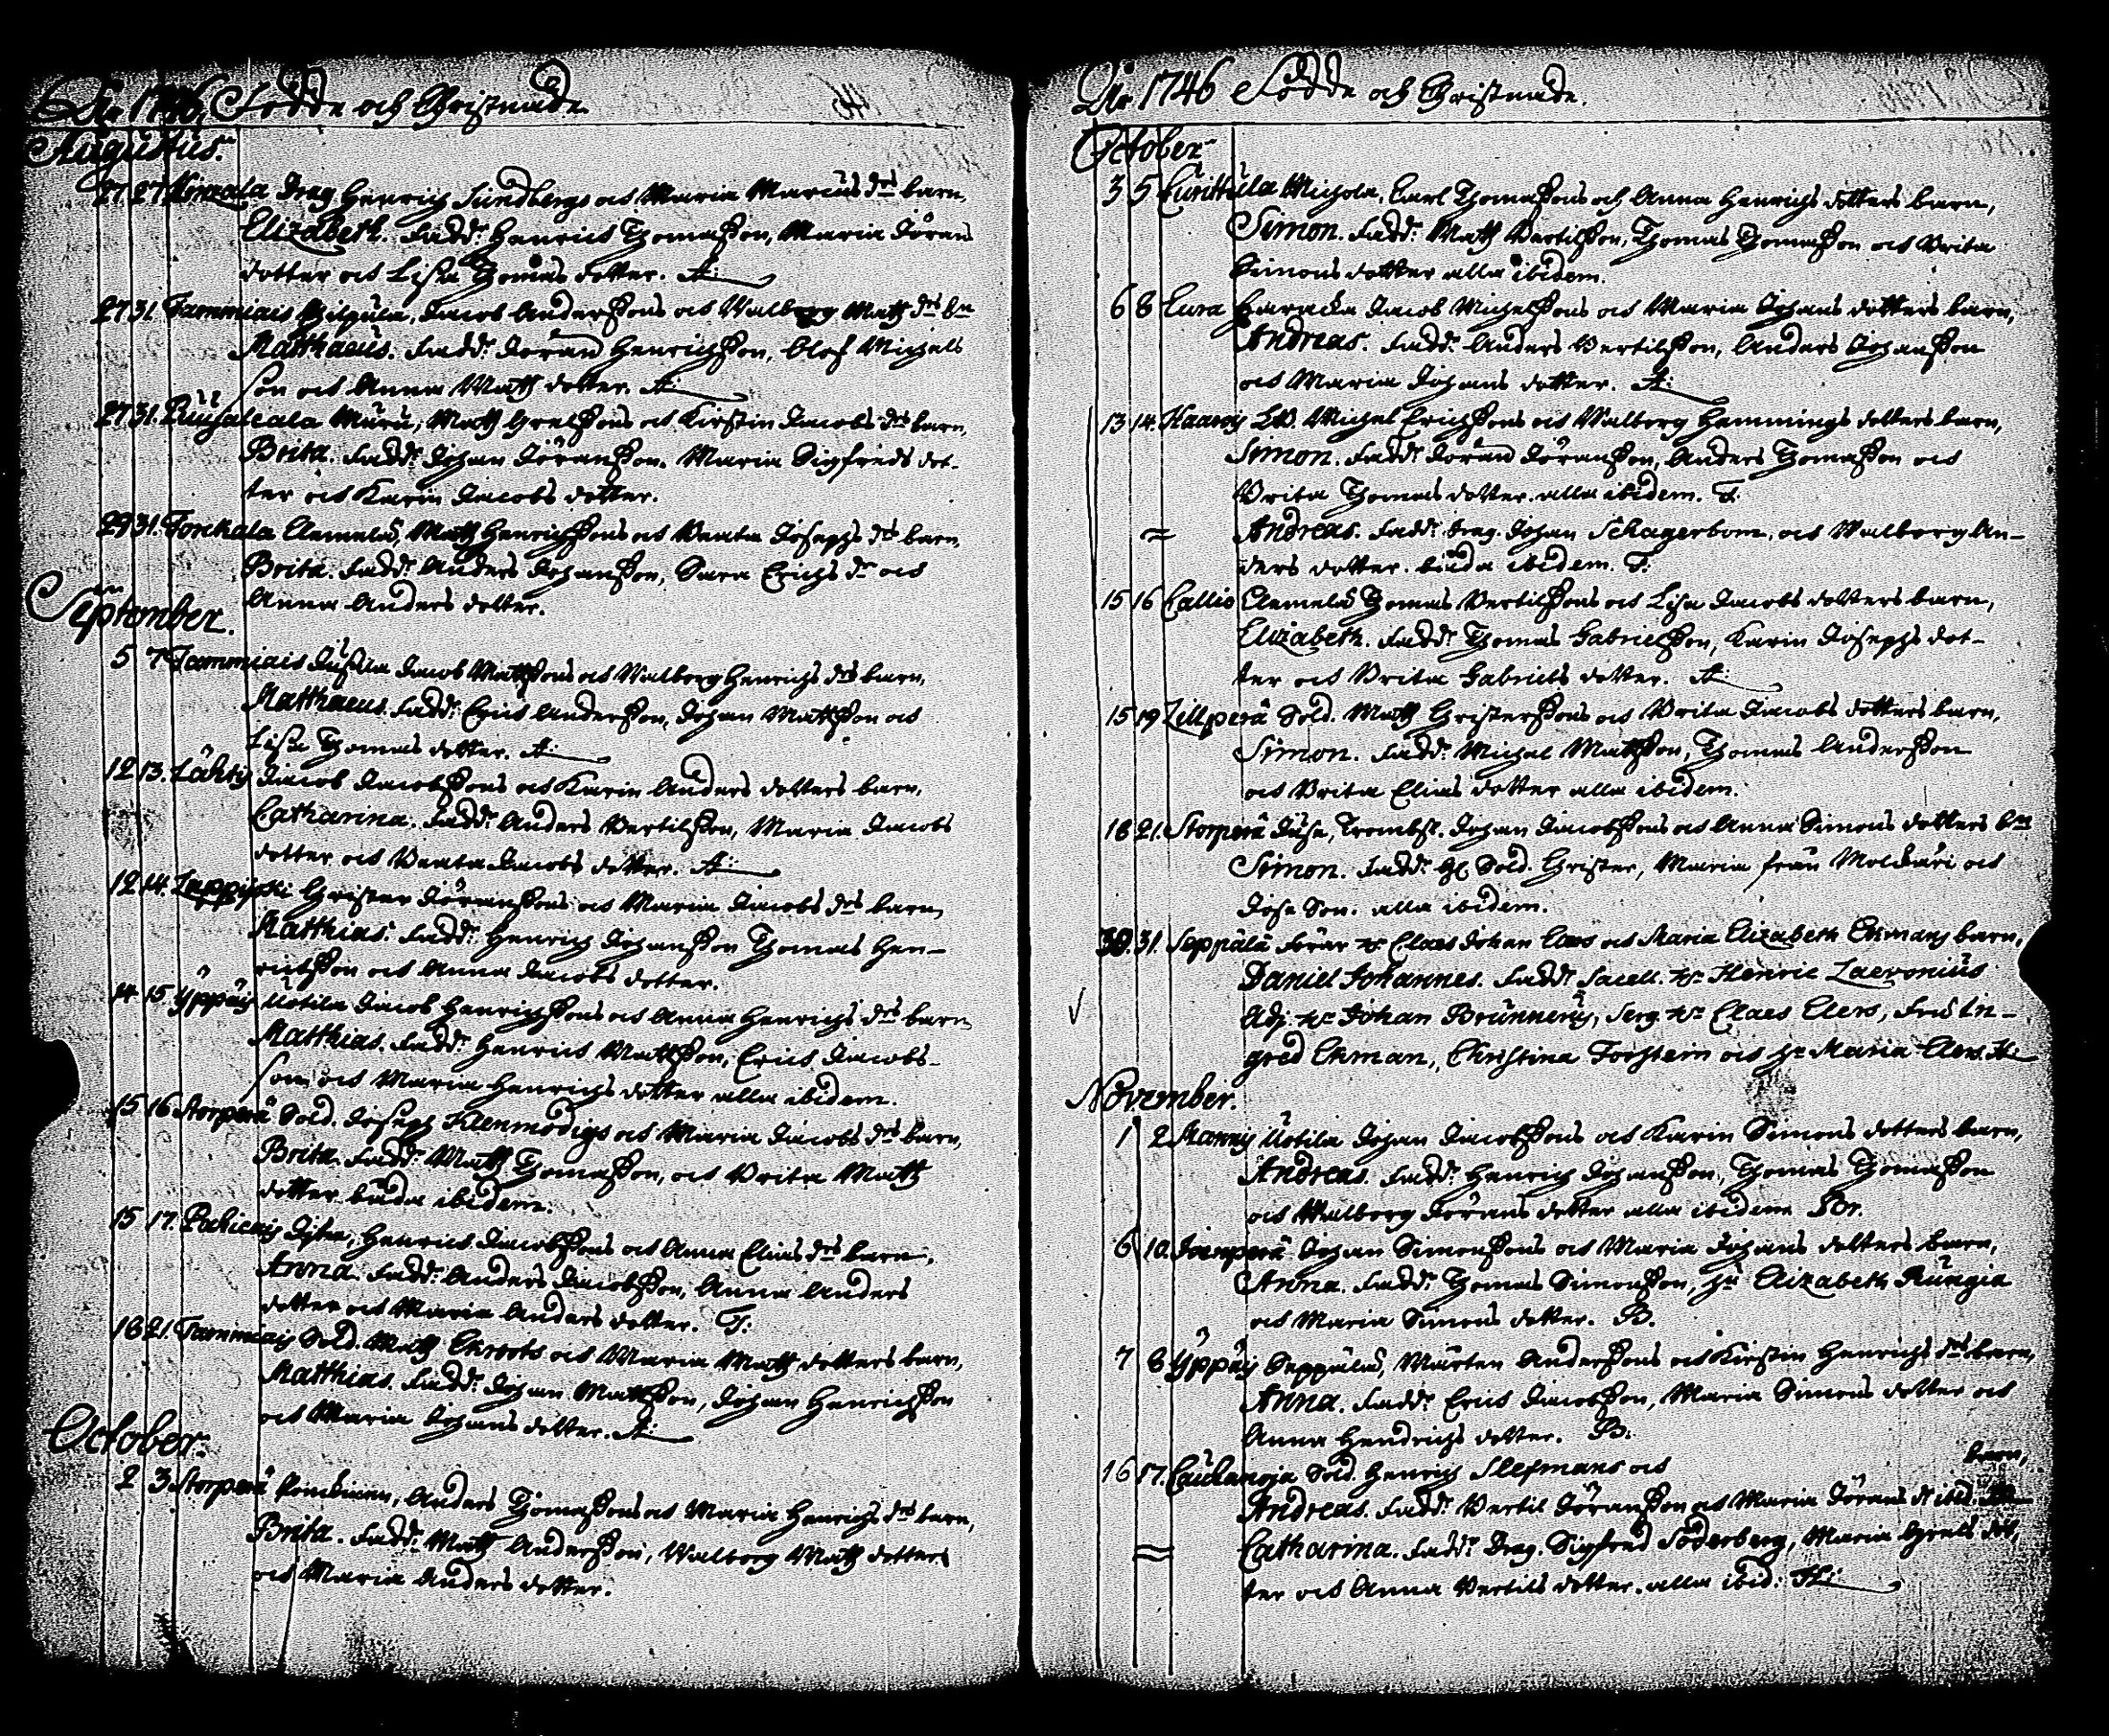 Åhr 1746, Födde och Christnade
Augustus.
27 27 Drag Henrich Sundbergs och Maria Marcus drs barn,
Elizabeth. Fadd: Henrich Thomasson, Maria Jöran
dotter och Lisa Thomas dotter. A:
27 31. Tammiais Pilgula, Jacob Anderssons och Walborg Matz drs bn
Matthaeus. Fadd: Jöran Henrichsson, Olof Michels
son och Anna Matz dotter. A:
27 31. Muru, Matz Grelssons och Kirstin Jacobs drs barn,
Brita. Fadd: Johan Jöransson, Maria Sigfreds dot-
ter och Karin Jacobs dotter.
29 31. Torckala Clemelä, Matz Henrichssons och Beata Josephs drs barn,
Brita. Fadd: Anders Johansson, Sara Erichs dr och
Anna Anders dotter.
September.
5 7 Tammiais Jacob Matssons och Walborg Henrichs drs barn,
Matthaeus. Fadd: Eric Andersson, Johan Mattsson och
Lisa Thomas dotter. A:
12 13. Lähtis Jacob Jacobssons och Karin Anders dotters barn,
Catharina. Fadd: Anders Bertilsson, Maria Jacobs
dotter och Beata Jacobs dotter. A:
12 14. Christer Jöranssons och Maria Jacobs drs barn,
Matthias. Fadd: Henrich Johansson Thomas Hen-
richsson och Anna Jacobs dotter.
14 15 Yppäis Uotila Jacob Henrichssons och Anna Henrichs drs barn
Matthias. Fadd: Henrich Mattsson, Erich Jacobs-
son och Maria Henrichs dotter alla ibidem.
15 16 Storperä Sold. Joseph Klenmodigs och Maria Jacobs drs barn,
Brita. Fadd: Matz Thomasson, och Brita Matz
dotter båda ibidem.
15 17. Henrich Jacobssons och Anna Elias drs barn,
Anna. Fadd: Anders Jacobsson, Anna Anders
dotter och Maria Anders dotter. T:
18 21. Tammiais Sold. Matz Ekroots och Maria Matz dotters barn,
Matthias. Fadd: Johan Mattsson, Johan Henrichsson
och Maria Johans dotter. A:
October.
2 3 Storperä Anders Thomassons och Maria Henrichs drs barn,
Brita. Fadd: Matz Andersson, Walborg Matz dotters
och Maria Anders dotter.
Åhr 1746 Födde och Christnade.
October
3 5 Michola, Carl Thomassons och Anna Henrichs dotters barn,
Simon. Fadd: Matz Bertilsson, Thomas Thomasson och Brita
Simons dotter alla ibidem.
6 8 Eura Jacob Michelssons och Maria Johans dotters barn,
Andreas. Fadd: Anders Bertilsson, Anders Johansson
och Maria Johans dotter. A:
13 14. Michel Erichssons och Walborg Hemmings dotters barn,
Simon. Fadd: Jöran Jöransson, Anders Thomasson och
Brita Thomas dotter. alla ibidem. T:
Andreas. Fadd: Drag. Johan Schagerbom, och Walborg An-
ders dotter. båda ibidem. T:
15 16 Callio Clemelä Thomas Bertilssons och Lisa Jacobs dotters barn,
Elizabeth. Fadd: Thomas Gabrielsson, Karin Josephs dot-
ter och Brita Gabriels dotter. A:
15 19 Zillperä Sold. Matz Christerssons och Brita Jacobs dotters barn,
Simon. Fadd: Michel Mattsson, Thomas Andersson
och Brita Elias dotter alla ibidem.
18 21. Storperä Juse, Trombsl. Johan Jacobssons och Anna Simons dotters bn
Simon. Fadd: Gl. Sold. Christer, Maria från Molckäri och
alla ibidem.
30. 31. Seppälä Förar Hr Claes Johan Elers och Maria Elizabeth Ekmans barn,
Daniel Johannes. Fadd: Sacell. Hr Henric Laevonius
Adj. Hr Johan Brunnerus, Serg. Hr Claes Elers, Fru In-
gred Ekman, Christina Forstein och Jr Maria Elers. H:
November.
1 2 Mannis Uotila Johan Jacobssons och Karin Simons dotters barn,
Andreas. Fadd: Henrich Johansson, Thomas Thomasson
och Walborg Jörans dotter alla ibidem Br.
6 10 Johan Simonssons och Maria Johans dotters barn,
Anna. Fadd: Thomas Simonsson, Jr Elizabeth Rungia
och Maria Simons dotter. B.
7 8 Yppäis Seppälä, Mårten Anderssons och Kirstin Henrichs drs barn,
Anna. Fadd: Eric Jacobsson, Maria Simons dotter och
Anna Hendrichs dotter. B:
16 17. Caukanoja Sold. Henrich Slefmans och barn,
Andreas. Fadd: Bertil Jöransson och Maria Jörans dr ibid.
Catharina. Fadd: Drag. Sigfred Söderberg, Maria Grels dot-
ter och Anna Bertils dotter. alla ibid: H: